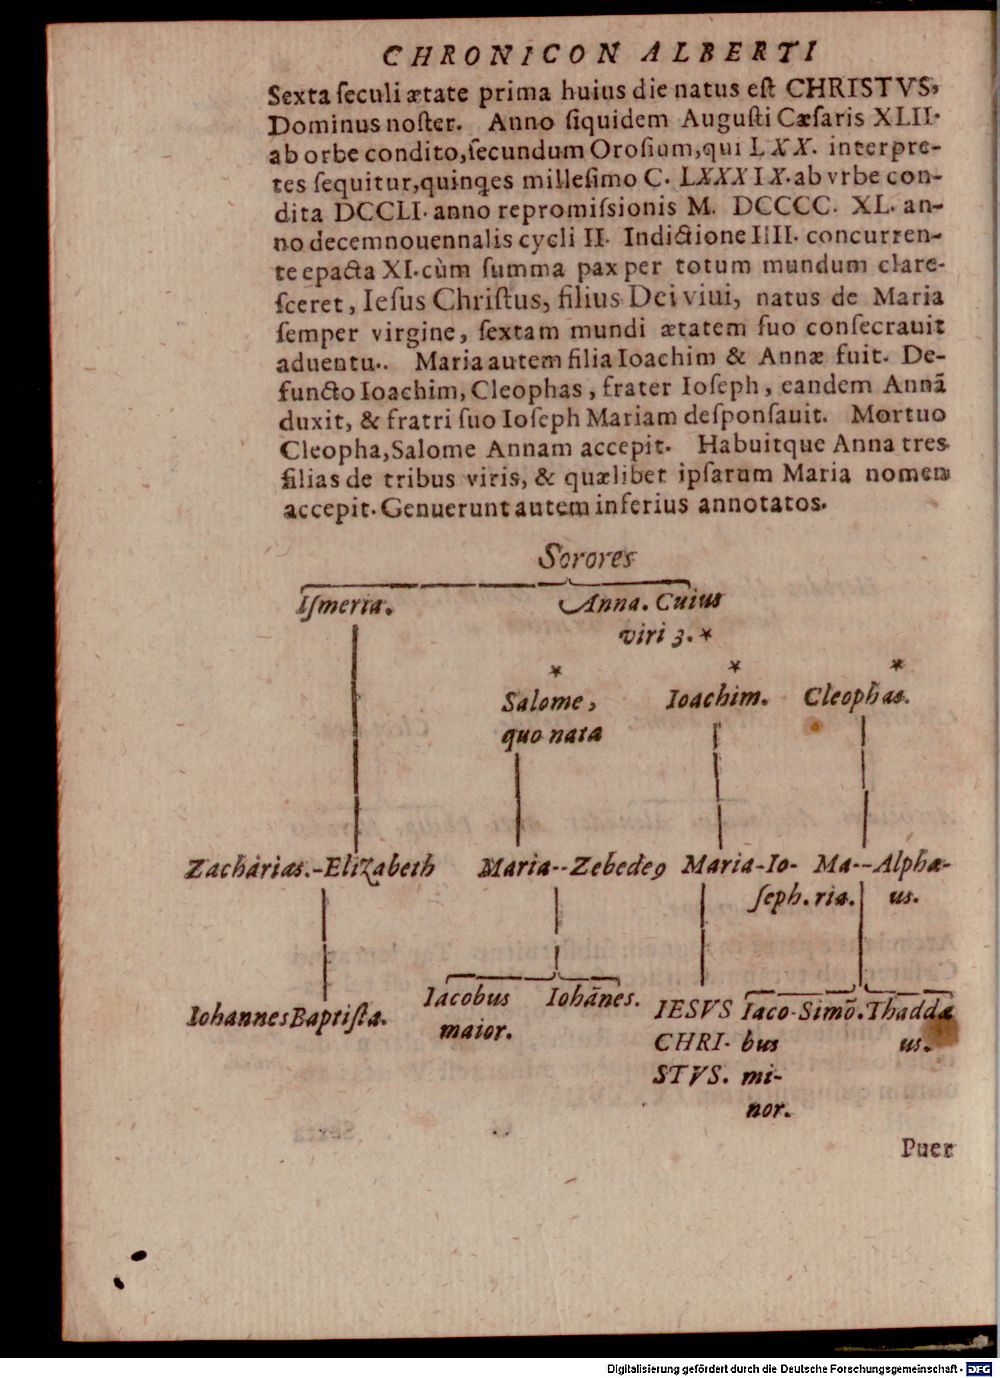 CHRONICON ALBERTI
Sexta ſeculi ætate prima huius die natus eſt CHRISTVS,
Dominus noſter. Anno ſiquidem Auguſti Cæſaris XLII.
ab orbe condito, ſecundum Oroſium, qui LXX. interpre-
tes ſequitur, quinqꝫes milleſimo C. LXXXIX. ab vrbe con-
dita DCCLI. anno repromiſsionis M. DCCCC. XL. an-
no decemnouennalis cycli II. Indictione IIII. concurren-
te epacta XI. cùm ſumma pax per totum mundum clare-
ſceret, Ieſus Chriſtus, filius Dei viui, natus de Maria
ſemper virgine, ſextam mundi ætatem ſuo conſecrauit
aduentu.. Maria autem filia Ioachim & Annæ fuit. De-
functo Ioachim, Cleophas, frater Ioſeph, eandem Annã
duxit, & fratri ſuo Ioſeph Mariam deſponſauit. Mortuo
Cleopha, Salome Annam accepit. Habuitque Anna tres
filias de tribus viris, & quælibet ipſarum Maria nomen
accepit. Genuerunt autem inferius annotatos.
Sorores
Iſmeria. Anna. Cuius
viri 3. *
* * *
Salome, Ioachim. Cleophas.
quo nata
Zacharias.-Elizabeth Maria--Zebedeꝯ Maria-Io- Ma--Alphæ-
ſeph. ria. us.
Iacobus Iohãnes.
maior.
Iohannes Baptiſta. IESVS Iaco- Simõ. Thaddæ
CHRI- bus us.
STVS. mi-
nor.
Puer
Digitalisierung gefördert durch die Deutsche Forschungsgemeinschaft - DFG